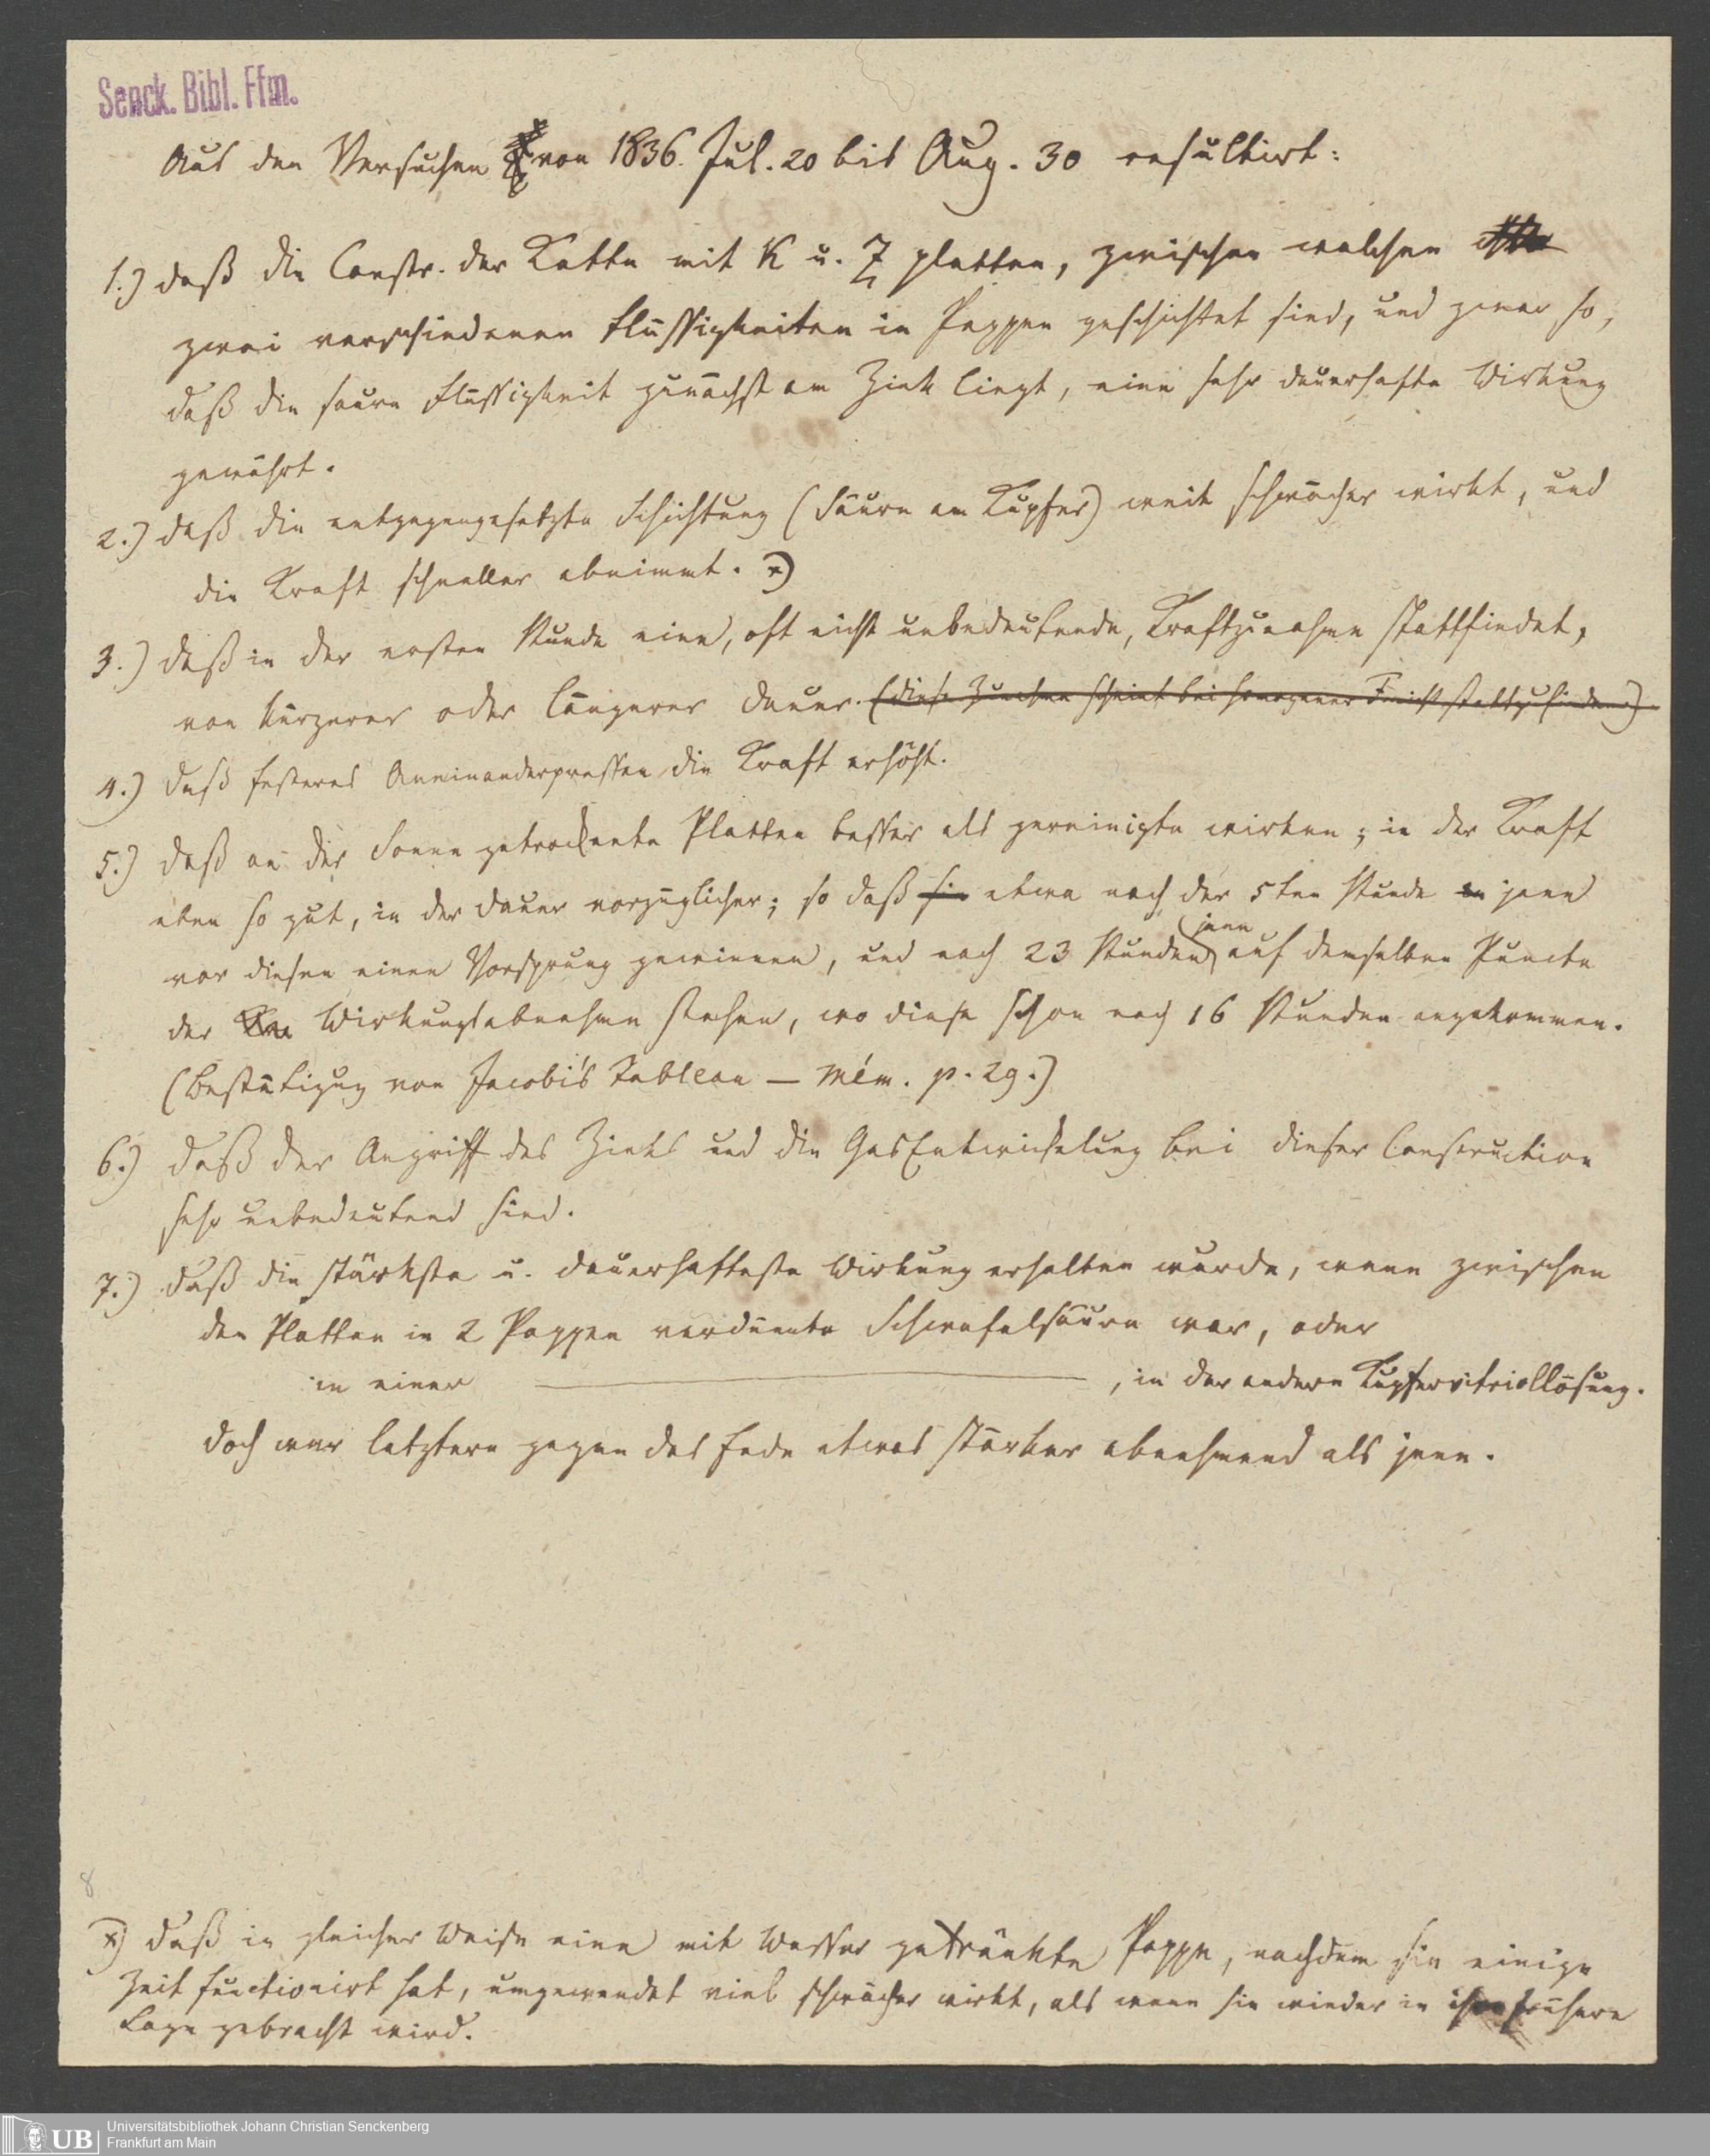 Senck. Bibl. Ffm.
Aus den Versuchen von 1836. Jul. 20 bis Aug. 30 resultirt:
1.) daß die Constr. der Kette mit K u. Z platten, zwischen welchen
zwei verschiedenen Flüssigkeiten in Pappen geschichtet sind, und zwar so,
daß die saure Flüssigkeit zunächst am Zink liegt, eine sehr dauerhafte Wirkung
gewährt.
2.) daß die entgegengesetzte Schichtung (Säure am Kupfer) weit schwächer wirkt, und
die Kraft schneller abnimmt. *)
3.) daß in der ersten Stunde eine, oft nicht unbedeutende, Kraftzunahme stattfindet,
von kürzerer oder längerer Dauer. (diese Zunahme scheint bei homogener F nicht stattzufinden.)
4.) daß festeres Aneinanderpressen die Kraft erhöht.
5.) daß an der Sonne getrocknete Platten besser als gereinigte wirken; in der Kraft
eben so gut, in der Dauer vorzüglicher; so daß sie etwa nach der 5ten Stunde jene
vor diesen einen Vorsprung gewinnen, und nach 23 Stunden jene auf demselben Puncte
der Wirkungsabnahme stehen, wo diese schon nach 16 Stunden angekommen.
(Bestätigung von Jacobi's Tableau — Mém. p. 29.)
6.) daß der Angriff des Zinks und die GasEntwickelung bei dieser Construction
sehr unbedeutend sind.
7.) daß die stärkste u. dauerhafteste Wirkung erhalten wurde, wenn zwischen
den Platten in 2 Pappen verdünnte Schwefelsäure war, oder
in einer ———, in der andern Kupfervitriollösung.
doch war letztere gegen das Ende etwas stärker abnehmend als jene.
8
*) daß in gleicher Weise eine mit Wasser getränkte Pappe, nachdem sie einige
Zeit functionirt hat, umgewendet viel schwächer wirkt, als wenn sie wieder in ihre frühere
Lage gebracht wird.
UB
Universitätsbibliothek Johann Christian Senckenberg
Frankfurt am Main